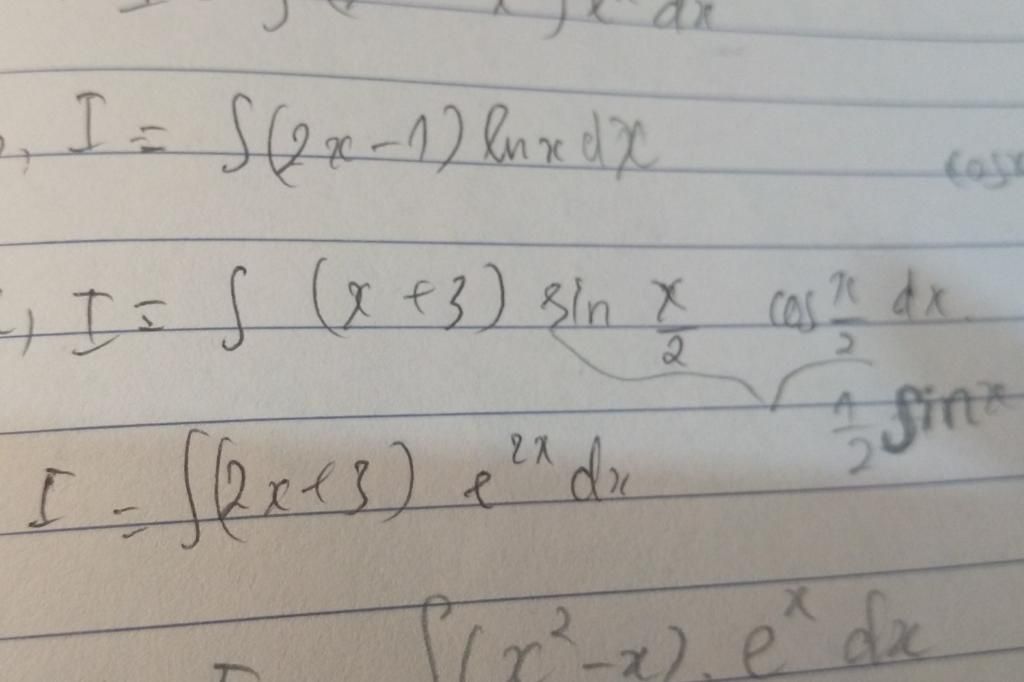 dx
I = ∫(2x-1) lnx dx
cosx
I = ∫ (x+3) sin x/2 cos x/2 dx
1/2 sinx
I = ∫(2x+3) e^2x dx
∫(x²-x). e^x dx